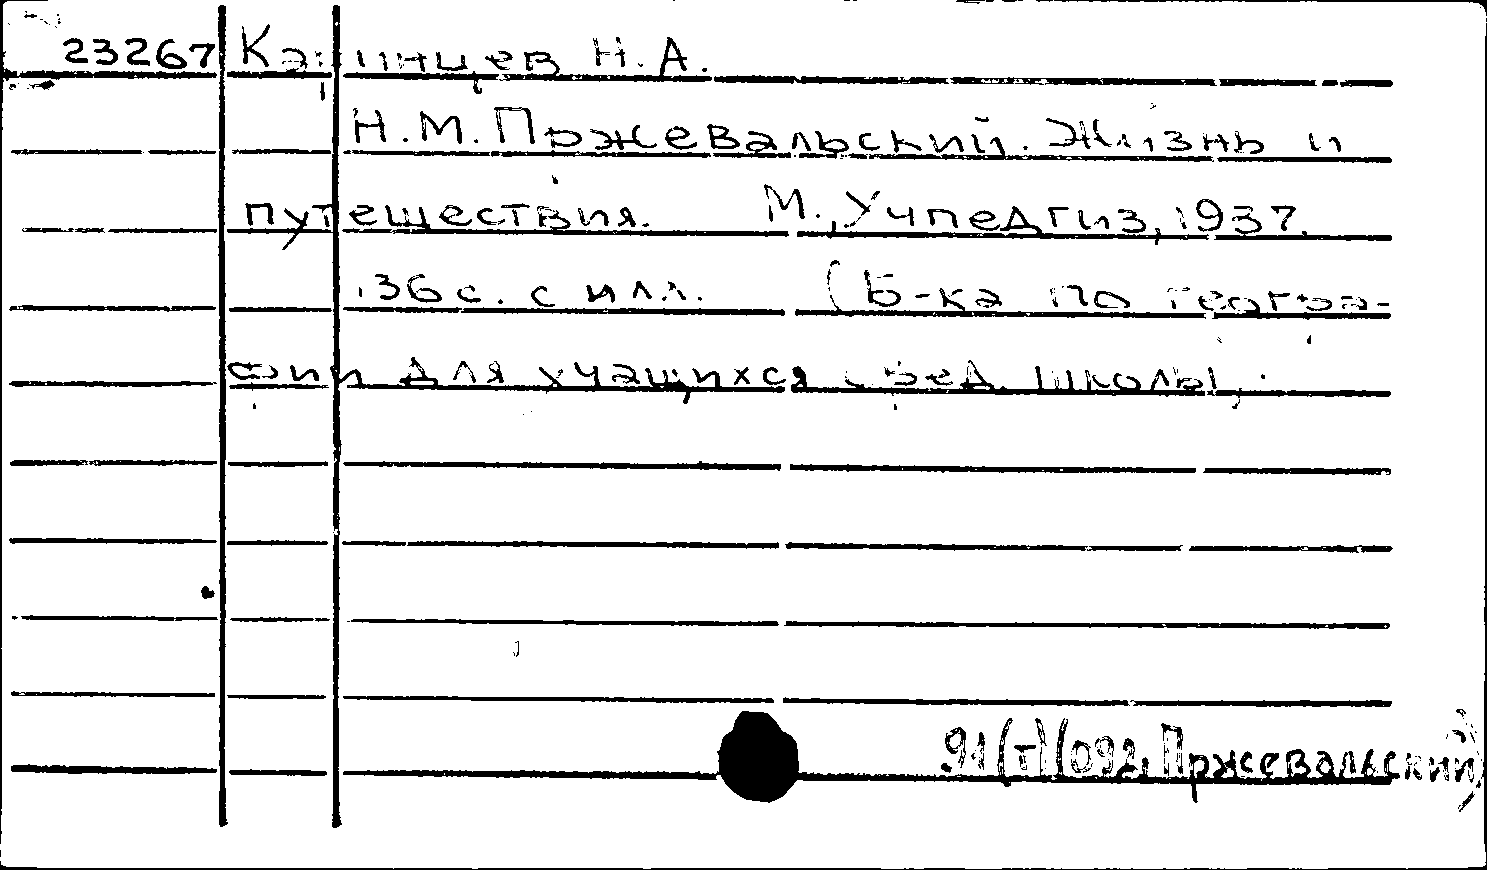 23267 Каринцев Н.А.
Н.М.Пржевальский. Жизнь и
путешествия. М., Учпедгиз, 1937.
136 с. с илл. (Б-ка по геогра-
фии для учащихся сред. школы).
91(т)(092, Пржевальский)